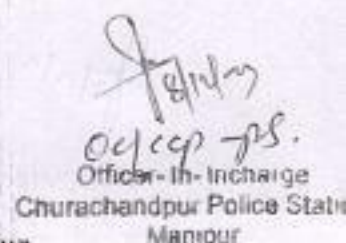 OC/CCP-PS.
Officer-In-Incharge
Churachandpur Police Stati
Manipur